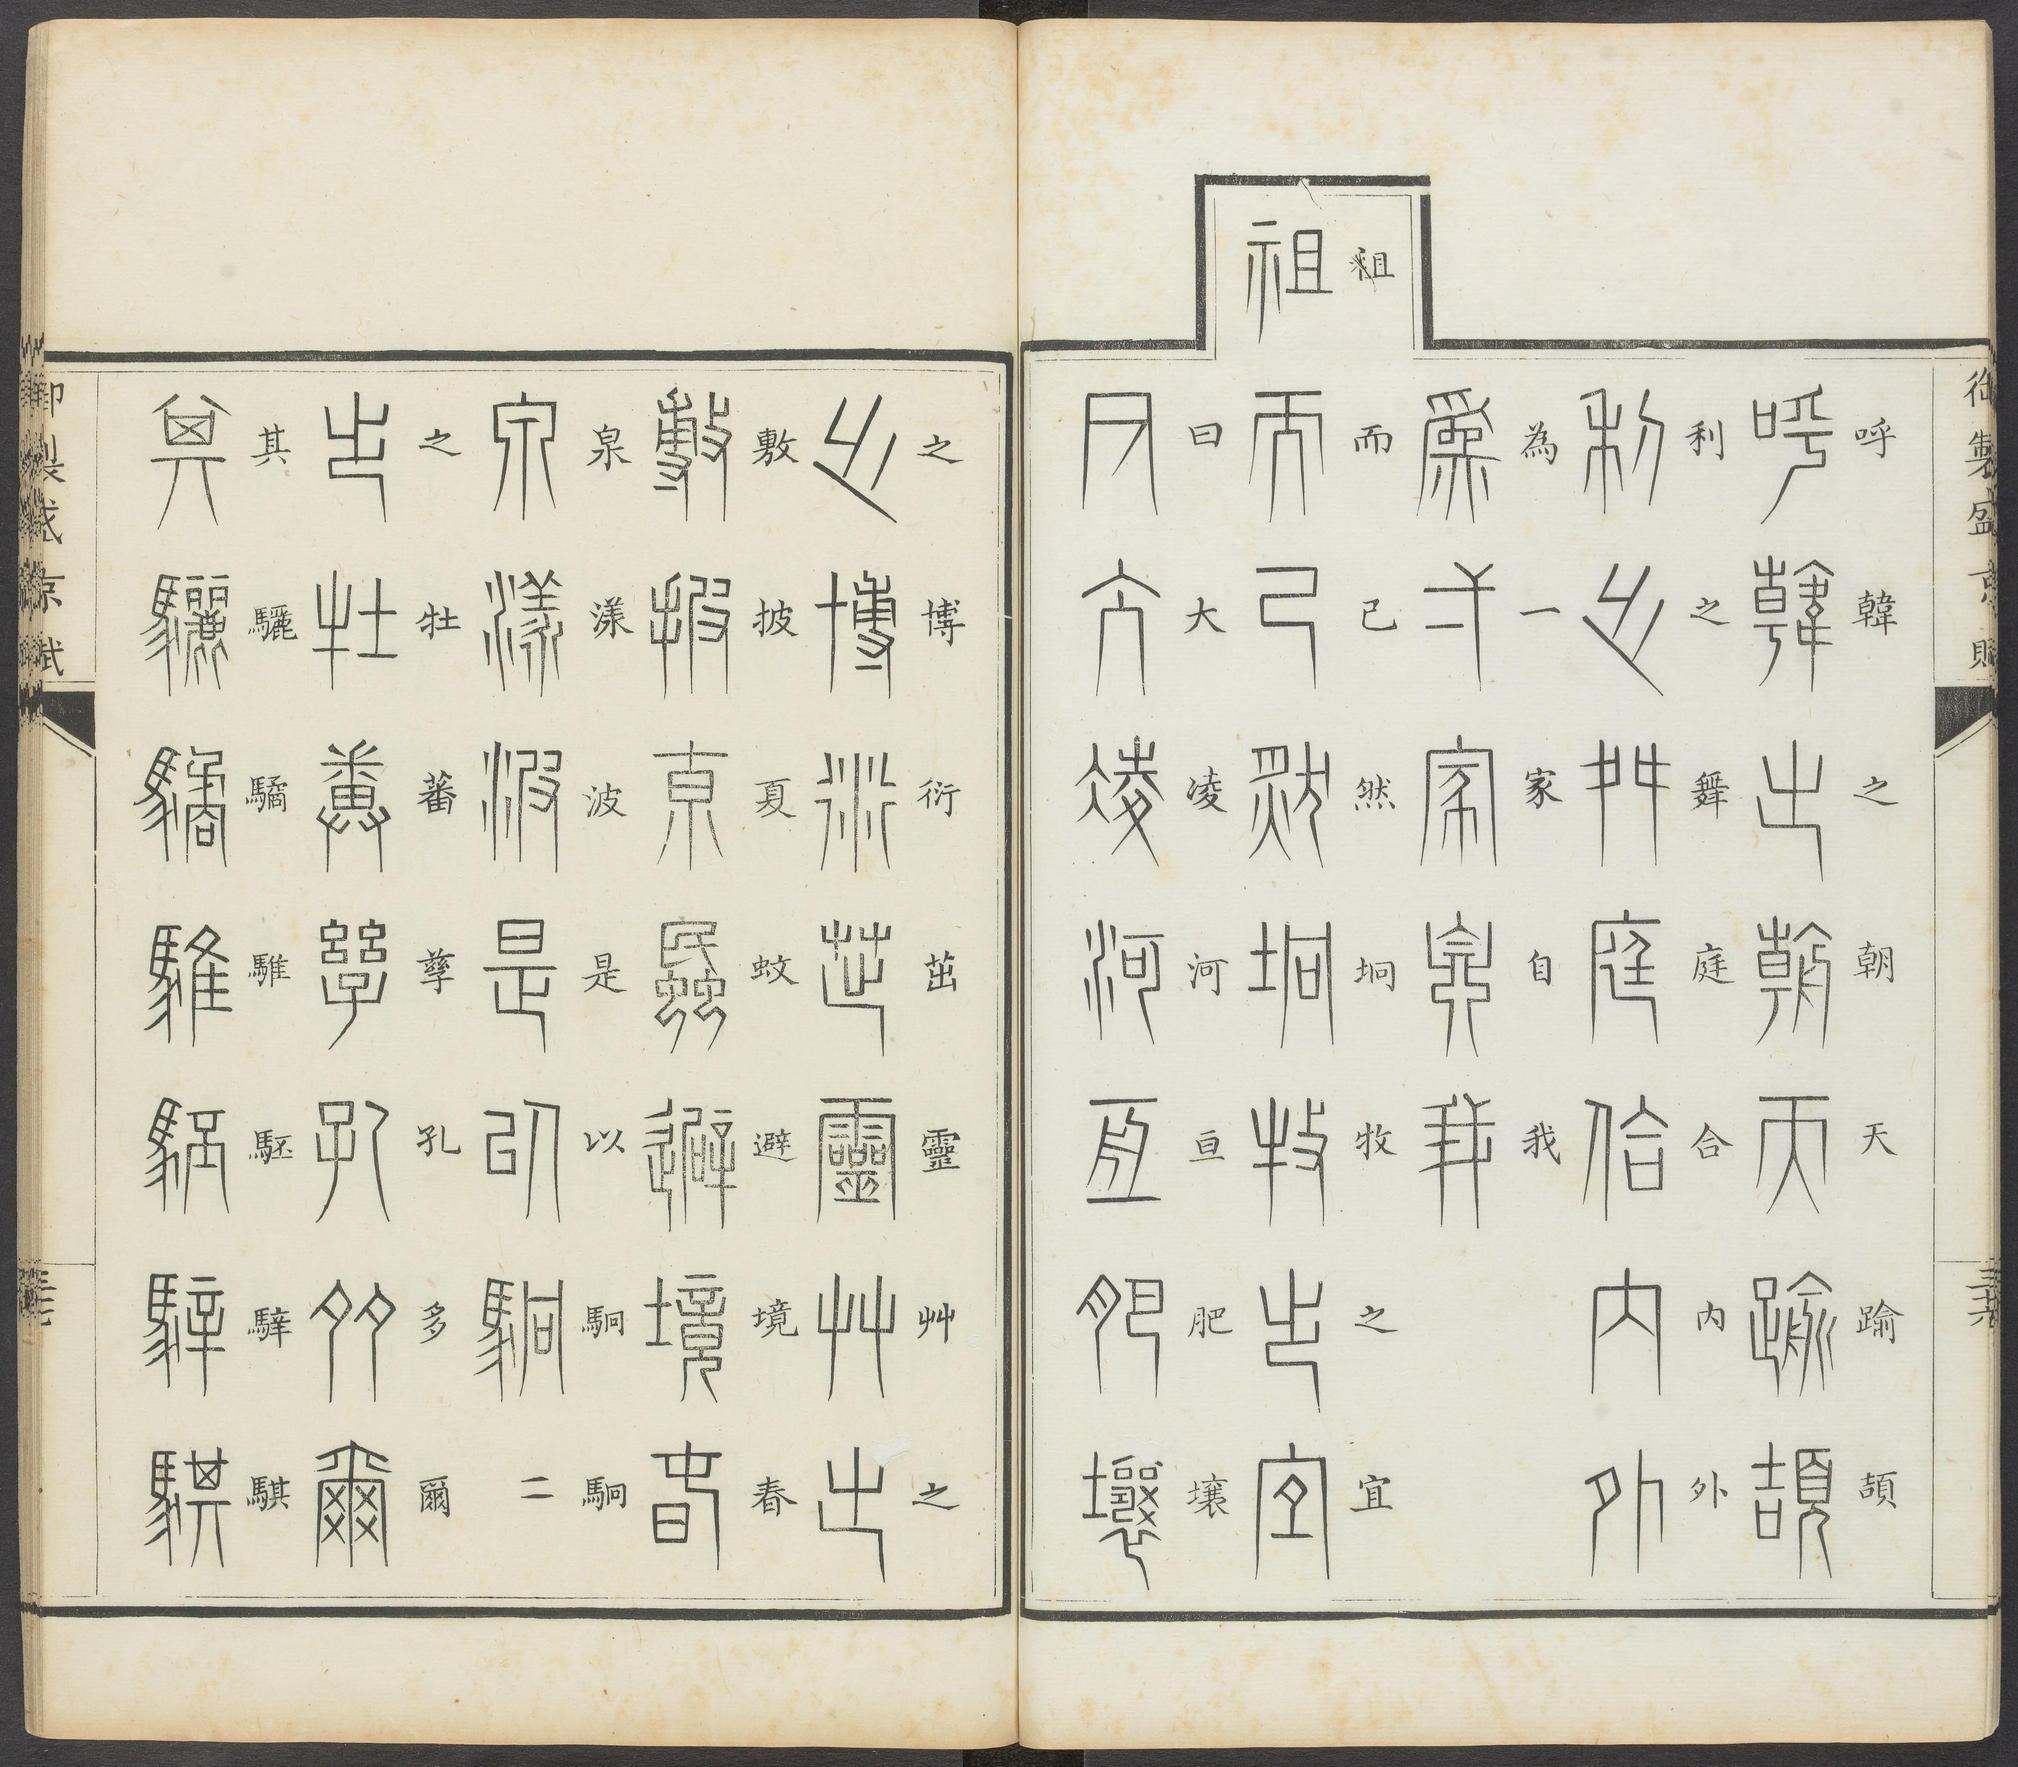 御製盛京賦
三十六
呼韓之朝天踰頡
利之舞庭合內外
為一家自我
祖而已然坰牧之宜
曰大凌河亘肥壤
之博衍茁靈艸之
敷披夏蚊避境春
泉漾波是以駉駉
之牡蕃孳孔多爾
其驪驈騅駓騂騏
御製盛京賦
三十七